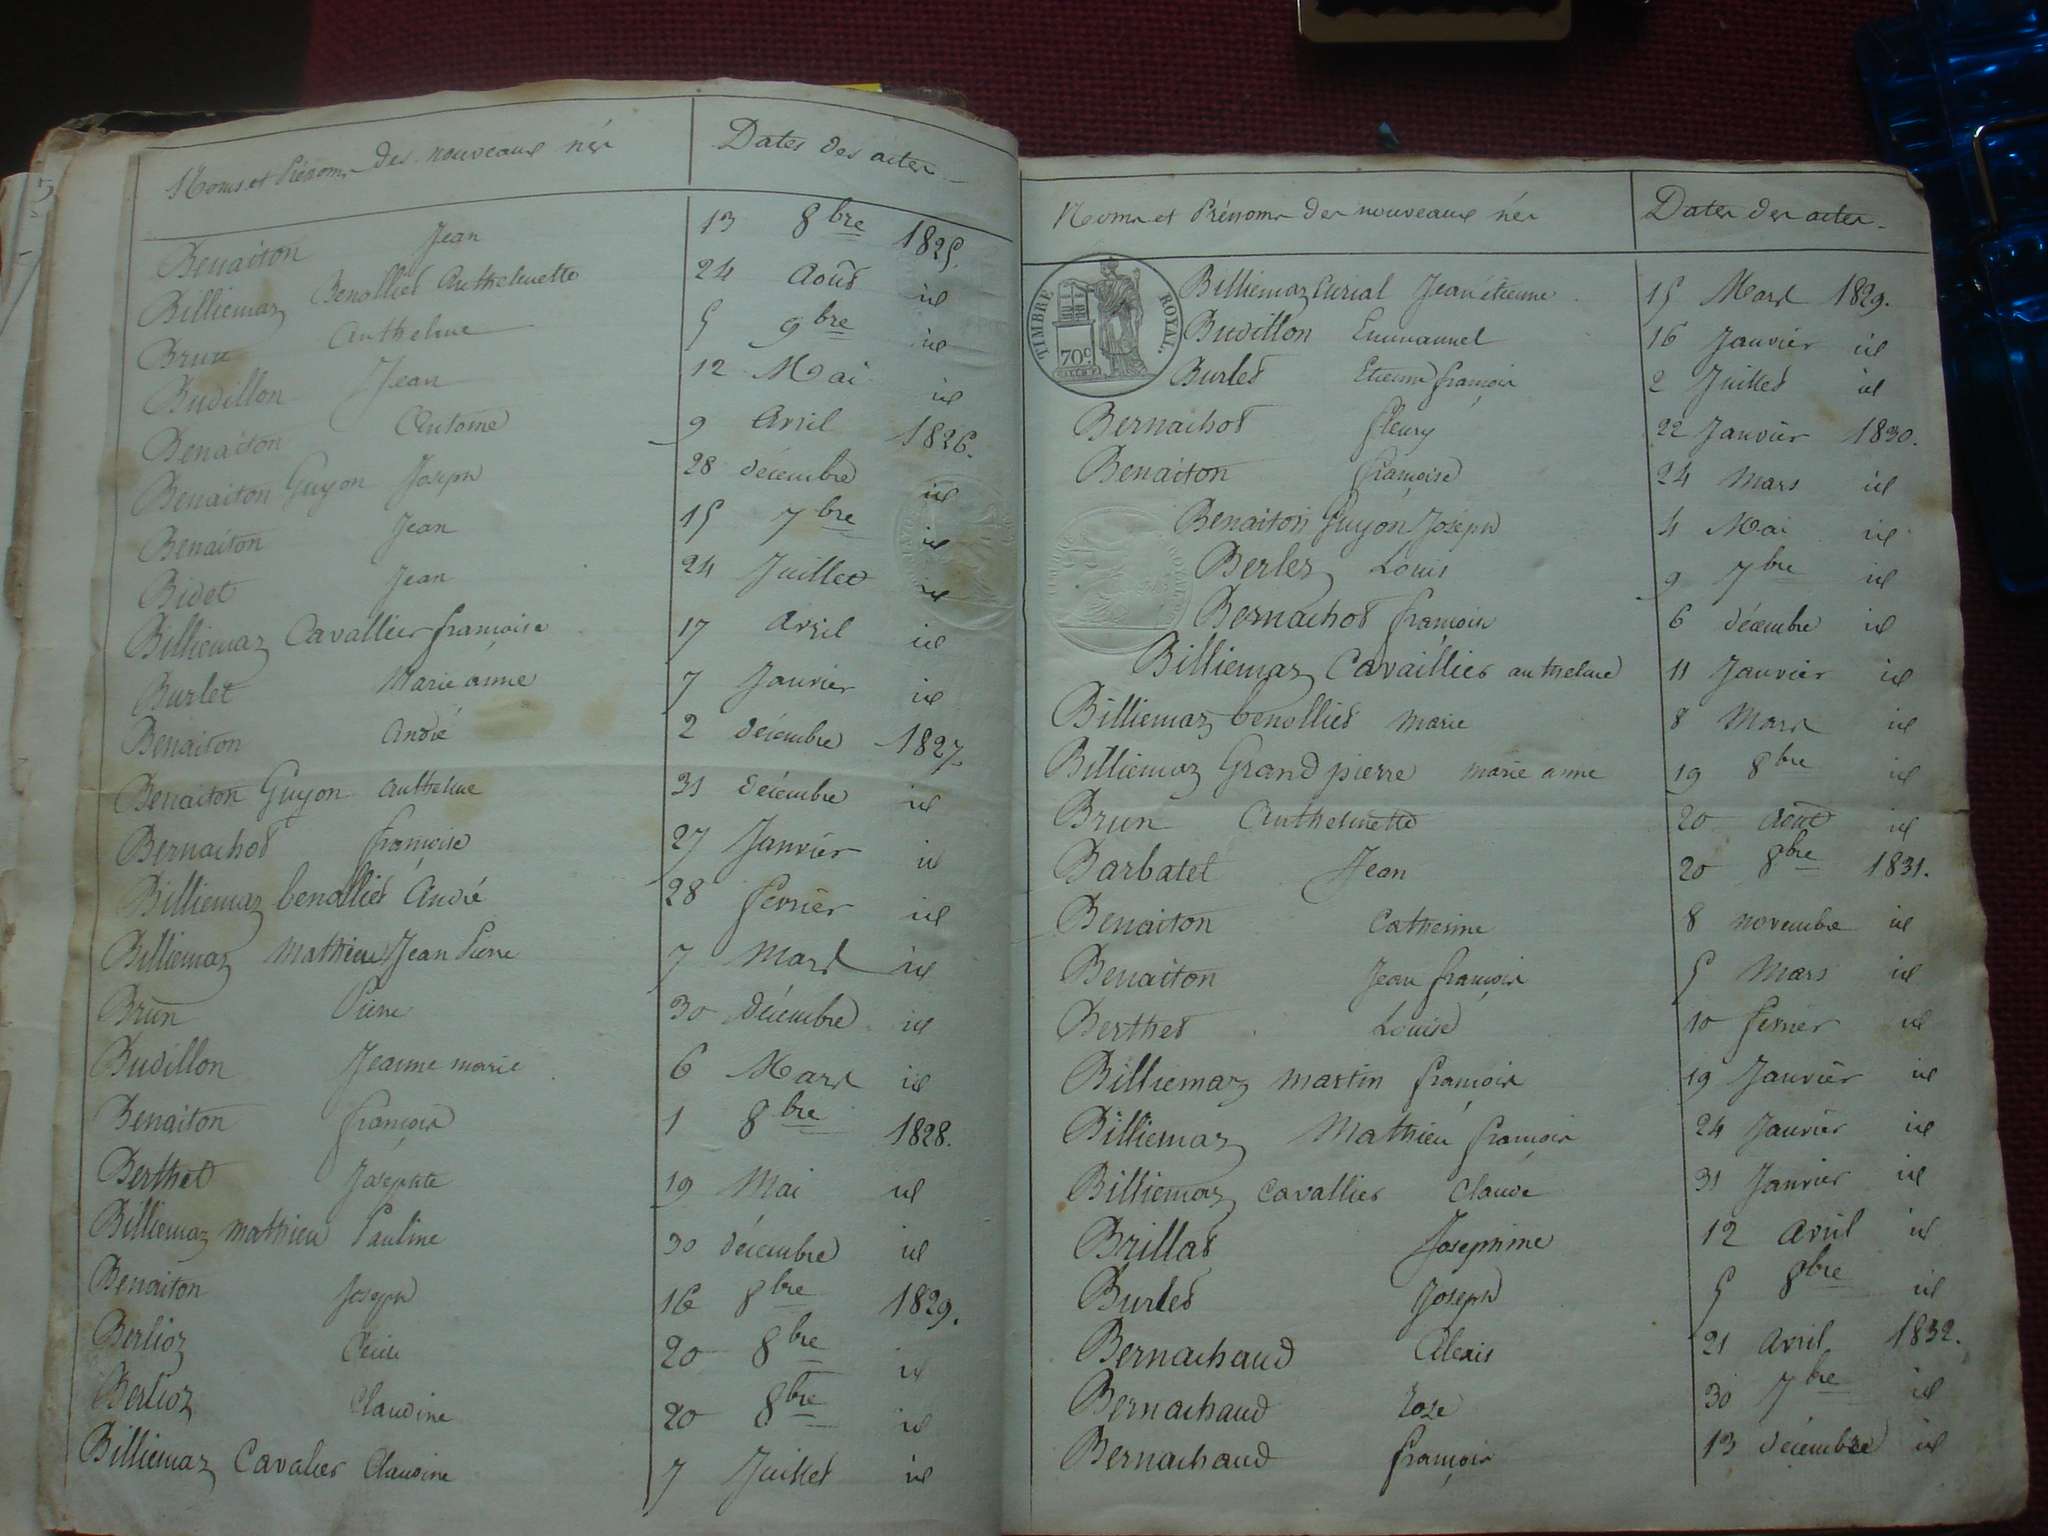 Noms et Prénoms des nouveaux nés Dates des actes
Benaiton Jean 13 8bre 1825.
Billiemaz Benolliet Anthelmette 24 Août id
Brun Anthelme 5 9bre id
Budillon Jean 12 Mai id
Benaiton Antoine 9 Avril 1826.
Benaiton Guyon Joseph 28 décembre id
Benaiton Jean 15 7bre id
Bidet Jean 24 Juillet id
Billiemaz Cavallier françoise 17 Avril id
Burlet Marie anne 7 Janvier id
Benaiton André 2 décembre 1827
Benaiton Guyon Anthelme 31 décembre id
Bernachot françoise 27 Janvier id
Billiemaz benolliet André 28 fevrier id
Billiemaz Mathieu Jean Pierre 7 Mars id
Brun Pierre 30 décembre id
Budillon Jeanne marie 6 Mars id
Benaiton françois 1 8bre 1828.
Berthet Josephte 19 Mai id
Billiemaz mathieu Pauline 30 décembre id
Benaiton Joseph 16 8bre 1829.
Berlioz Cécile 20 8bre id
Berlioz Claudine 20 8bre id
Billiemaz Cavalier Claudine 7 Juillet id
Noms et Prénoms des nouveaux nés Dates des actes.
TIMBRE ROYAL.
70c.
Billiemaz Curial Jean étienne 15 Mars 1829.
Budillon Emmanuel 16 Janvier id
Burlet Etienne françois 2 Juillet id
Bernachot fleury 22 Janvier 1830.
Benaiton françoise 24 Mars id
Benaiton Guyon Joseph 4 Mai id
Berlez Louis 9 7bre id
Bernachot françois 6 décembre id
Billiemaz Cavaillier anthelme 11 Janvier id
Billiemaz benolliet Marie 8 Mars id
Billiemaz Grand pierre marie anne 19 8bre id
Brun Anthelmette 20 Août id
Barbatet Jean 20 8bre 1831.
Benaiton Catherine 8 novembre id
Benaiton Jean françois 5 Mars id
Berthet Louise 10 fevrier id
Billiemaz martin françois 19 Janvier id
Billiemaz Mathieu françois 24 Janvier id
Billiemaz Cavallier Claude 31 Janvier id
Brillat Josephine 12 Avril id
Burlet Joseph 5 8bre id
Bernachaud Alexis 21 Avril 1832.
Bernachaud Roze 30 7bre id
Bernachaud françois 13 décembre id